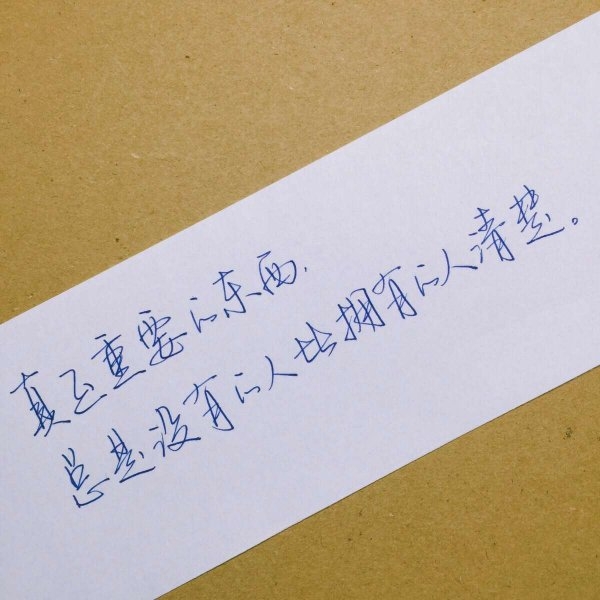 真正重要的东西.
总是没有的人比拥有的人清楚。